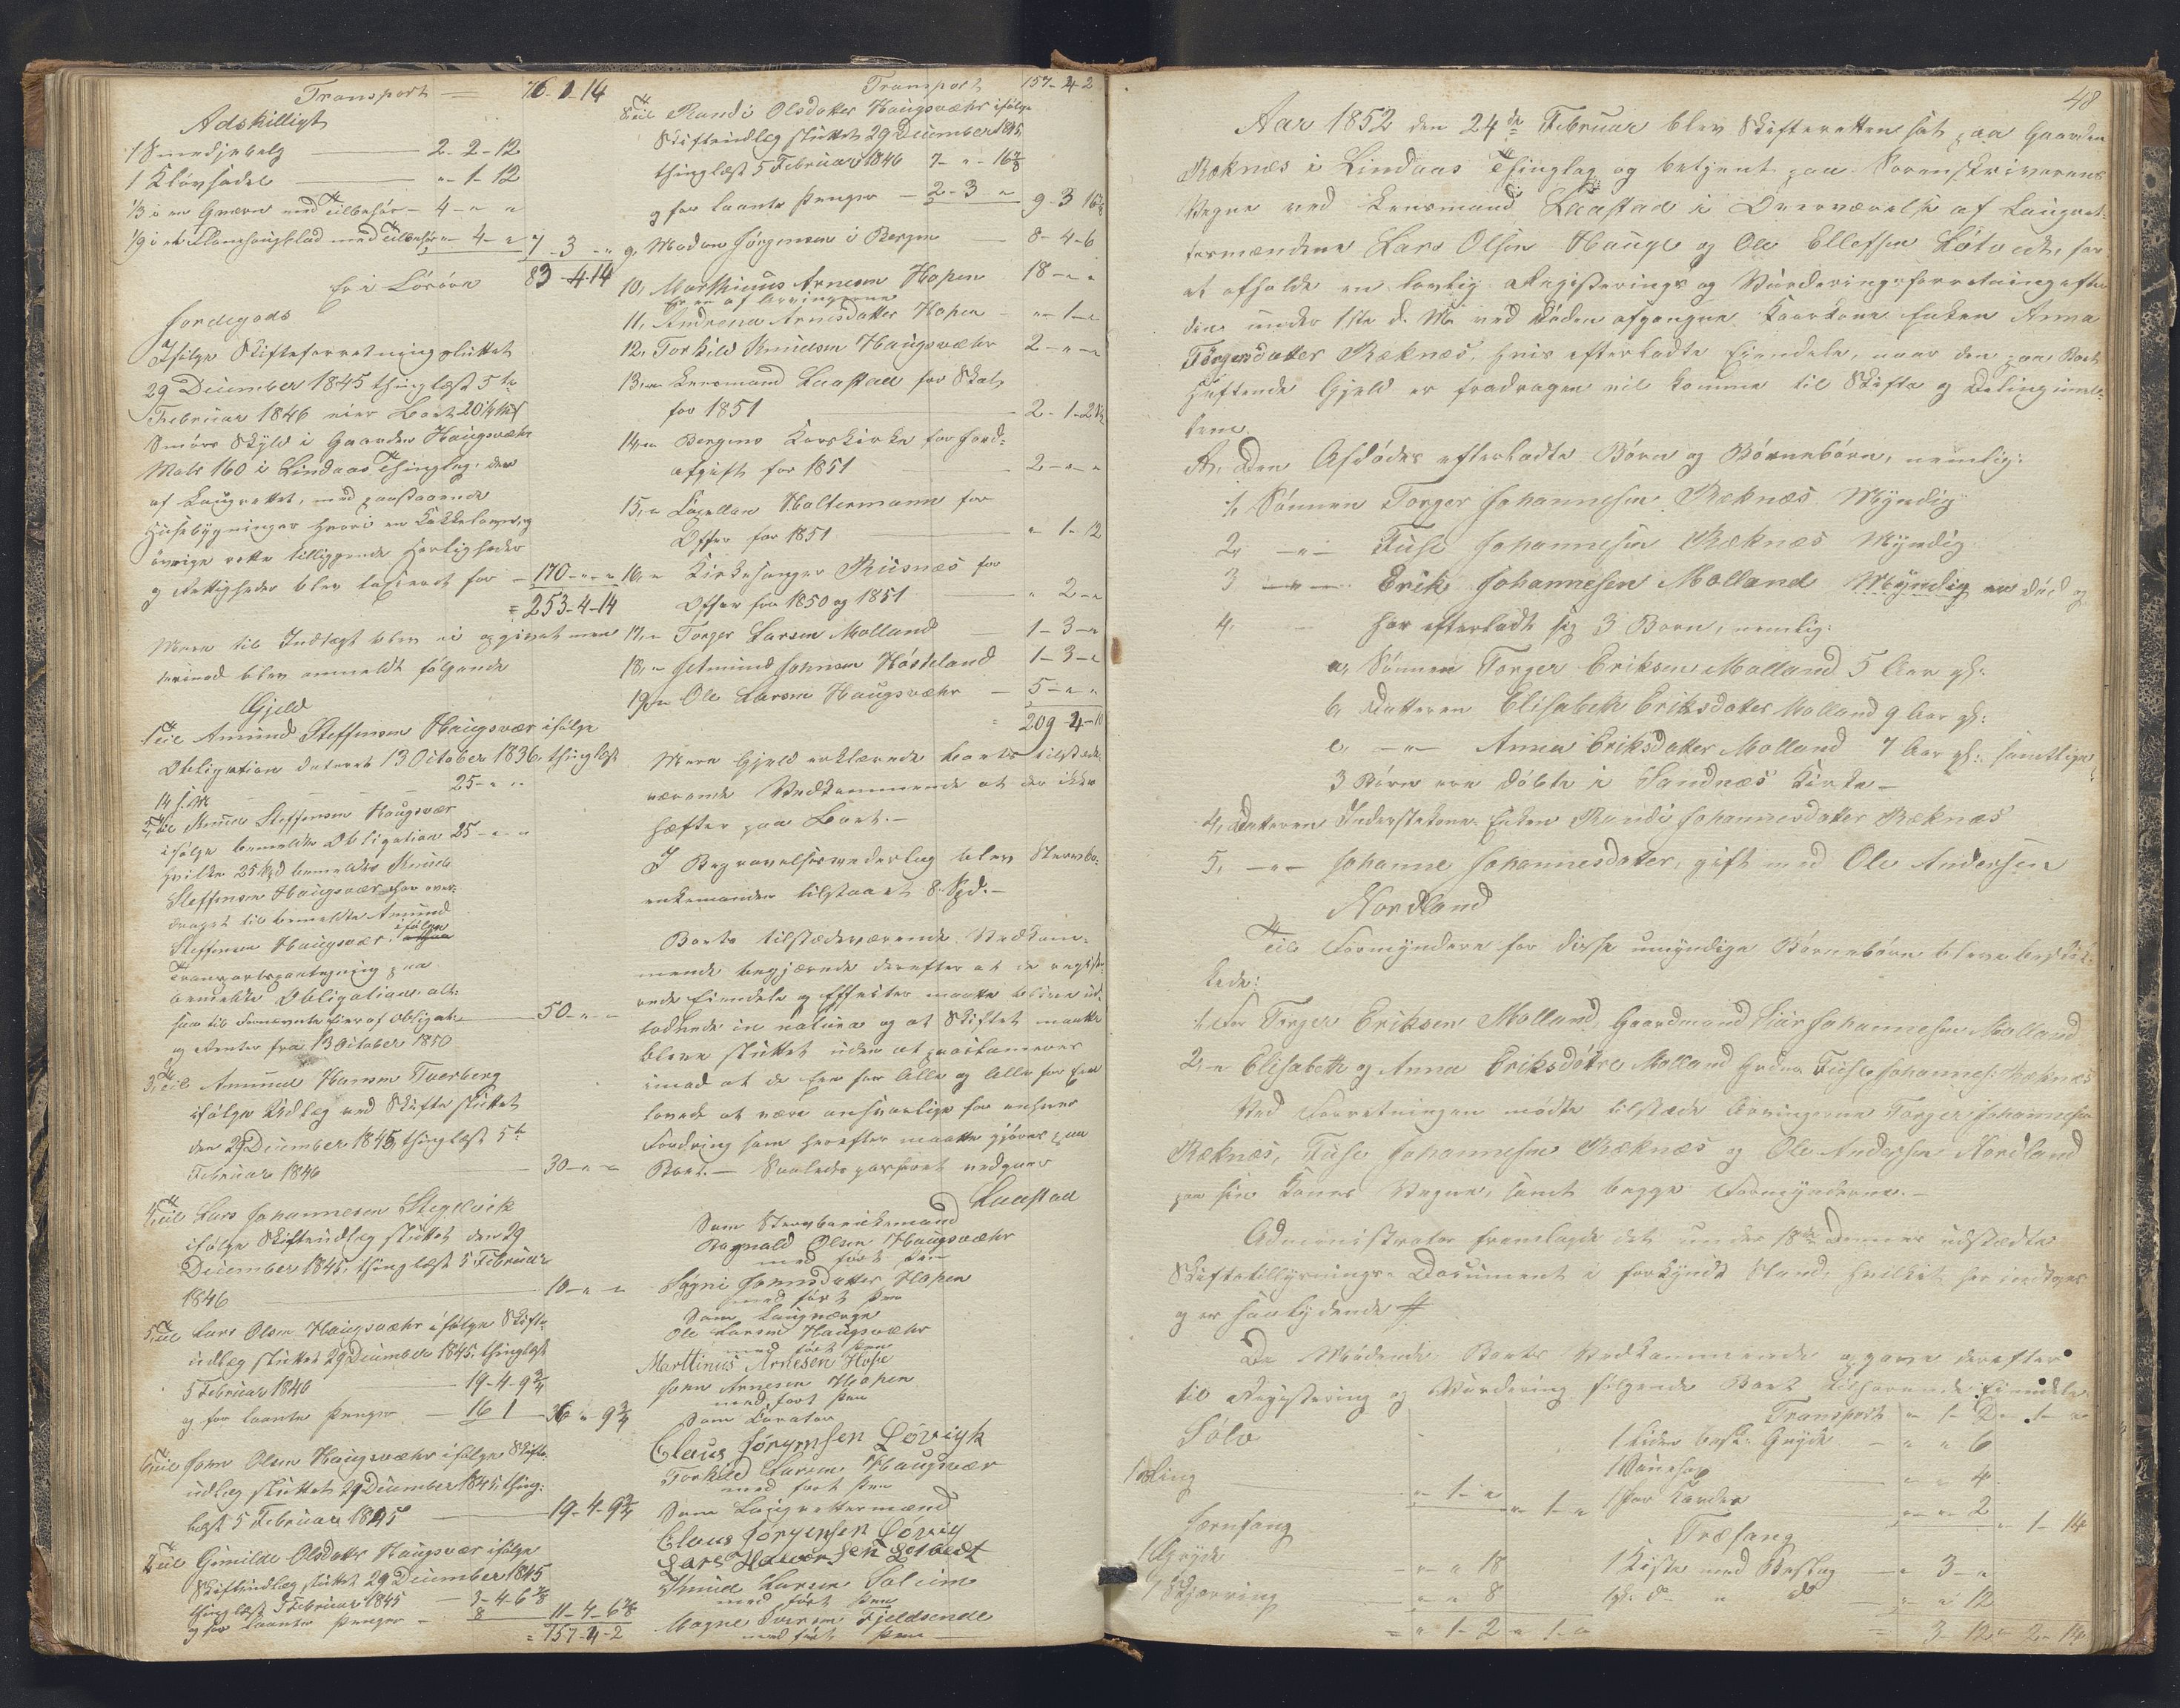 Transport = 76-1-14
Adskilligt
1 Smedjebelg 2-2-12
1 Kløvsadel "-1-12
1/3 i en Qværn med Tilbehør - 4-"-"
1/9 i et Flomsaugblad med Tilbehør "-4-" 7-3-"
Er i Løsøre 83-4-14
Jordegods
Ifølge Skifteforretning sluttet
29 December 1845 thinglæst 5te
Februar 1846 eier Boet 20 1/4 Mk
Smørs Skyld i Gaarden Haugsvæhr
Matr 160 i Lindaas Thinglag, der
af Laugrettet, med paastaaende
Huusebygninger hvori en Kakkelovn, og
øvrige rette tilliggende Herligheder
og Rettigheder blev taxeret for - 170-"-"
= 253-4-14
Mere til Indtægt blev ei opgivet men
herimod blev anmeldt følgende
Gjeld
1, Til Amund Steffensen Haugsvær ifølge
Obligation dateret 13 October 1836, thinglæst
14 s. M. 25-"-"
2, Til Knud Steffensen Haugsvær
ifølge bemeldte Obligation 25-"-"
hvilke 25 Spd bemeldte Knud
Steffensen Haugsvær har over-
draget til bemeldte Amund
Steffensen Haugsvær ifølge
Transportpaategning paa
bemeldte Obligation alt-
saa til Fornævnte Eier af Obligat: 50-"-"
og Renter fra 13 October 1850
3, Til Amund Hansen Tverberg
ifølge Udlæg ved Skifte sluttet
den 29 December 1845, thinglæst 5te
Februar 1846 30-"-"
4, Til Lars Johannesen Stegelvik
ifølge Skifteudlæg sluttet den 29
December 1845, thinglæst 5 Februar
1846 10-"-"
5, Til Lars Olsen Haugsvæhr ifølge Skifte-
udlæg sluttet 29 December 1845, thinglæst
5 Februar 1846 19-4-9 3/4
og for laante Penge 16 1 36 "-9 3/4
6, Til John Olsen Haugsvæhr ifølge Skifte-
udlæg sluttet 29 December 1845, thing-
læst 5 Februar 1845 19-4-9 3/4
Til Gunilde Olsdatter Haugsvær ifølge
Skifteudlæg sluttet 29 December 1845
thinglæst 5 Februar 1845 3-4-6 7/8
og for laante Penge - 8 11-4-6 7/8
= 157-4-2
Transport 157-4-2
8, Til Randi Olsdatter Haugsvæhr ifølge
Skifteudlæg sluttet 29 December 1845,
thinglæst 5 Februar 1846 7-"-16 7/8
og for laante Penge - 2-3-" 9-3 16 7/8
9, Madam Jørgensen i Bergen 8-4-6
10, Marthinus Arnesen Hopen 18-"-"
er en af Arvingerne
11, Andrea Arnesdatter Hopen "-1-"
12, Torkild Knudsen Haugsvæhr 2-"-"
13, " Lensmand Laastad for Skat
for 1851 2-1-21 1/2
14, " Bergens Korskirke for Jord-
afgift for 1851 2-"-"
15, " Capellan Haltermann for
Offer for 1851 "-1-12
16, " Kirkesanger Risnæs for
Offer for 1850 og 1851 " 2-"
17, " Torger Larsen Molland 1-3-"
18, " Jetmund Johnsen Høsteland 1-3-"
19, " Ole Larsen Haugsvæhr 5-"-"
209-4-10
Mere Gjeld erklærede Boets tilstede-
værende Vedkommende at der ikke
hæfter paa Boet.-
I Begravelsesvederlag blev Stervbo-
enkemanden tilstaaet 8 Spd.-
Boets tilstedeværende Vedkom-
mende begjærede derefter at de registre-
rede Eiendele og Effecter maatte blive ud-
loddede in natura og at Skiftet maatte
blive sluttet uden at proclameres
imod at de Een for Alle og Alle for Een
lovede at være ansvarlige for enhver
Fordring som herefter maatte gjøres paa
Boet.- Saaledes passeret vedgaaes
Laastad
Som Stervboenkemand
Ragnald Olsen Haugsvæhr
med ført Pen
Sygni Johnsdatter Hopen
med ført Pen
Som Laugværge
Ole Larsen Haugsvæhr
med ført Pen
Marttinus Arnesen Hope
John Arnesen Hopen
med ført Pen
Som Curator
Claus Jörgensen Lövigh
Torkild Larsen Haugsvær
med ført Pen
Som Laugrettesmænd
Claus Jörgensen Lövig
Lars Halvorsen Lötvedt
Knud Larsen Solem
med ført Pen
Magne Iversen Fjeldsende
med ført Pen
48
Aar 1852 den 24de Februar blev Skifteretten sat paa Gaarden
Ræknæs i Lindaas Thinglag og betjent paa Sorenskriverens
Vegne ved Lensmand Laastad i Overværelse af Laugret-
tesmændene Lars Olsen Hauge og Ole Ellefsen Løtvedt, for
at afholde en lovlig Registerings og Vurderingsforretning efter
den under 1ste d. M. ved Døden afgangne Kaarkone Enken Anna
Torgersdatter Ræknæs, hvis efterladte Eiendele, naar den paa Boet
heftende Gjeld er fradragen vil komme til Skifte og Deling imel-
lem.
A, Den Afdødes efterladte Børn og Børnebørn, nemlig:
1, Sønnen Torger Johannesen Ræknæs Myndig
2, -"- Fuse Johannesen Ræknæs Myndig
3 -"- Erik Johannesen Molland Myndig er død og
4, har efterladt sig 3 Børn, nemlig:
a, Sønnen Torger Eriksen Molland 5 Aar gl:
b, Datteren Elisabeth Eriksdatter Molland 9 Aar gl:
c, -"- Anna Eriksdatter Molland 7 Aar gl: samtlige
3 Børn ere døbte i Sandnæs Kirke -
4, Datteren Inderstekone Enken Randi Johannesdatter Ræknæs
5, -"- Johanne Johannesdatter, gift med Ole Andersen
Nordland
Til Formyndere for disse umyndige Børnebørn bleve beskik-
kede:
1, For Torger Eriksen Molland, Gaardmand Siur Johannesen Molland
2, " Elisabeth og Anna Eriksdøtre Molland Fuse Johannes: Ræknæs
Ved Forretningen mødte tilstede Arvingerne Torger Johannesen
Ræknæs, Fuse Johannesen Ræknæs og Ole Andersen Nordland
paa sin Kones Vegne, samt begge Formynderne.-
Administrator fremlagde det under 18de dennes udstædte
Skiftetillysnings-Document i forkyndt Stand, hvilket her indtages
og er saalydende
De Mødende Boets Vedkommende opgave derefter
til Registering og Vurdering følgende Boet tilhørende Eiendele
Sølv
1 Ring "-1-" "-1-"
Jernfang
1 Gryde "-"18
1 Skjærring "-"8
= "1-2 "1-"
Transport "-1-2-"1-"
1 liden besk: Gryde " " 6
1 " " 4
1 Par Karder "-"2 "-1-14
Træfang
1 Kiste med Beslag - 3-"
1 gl: do " do "-"12
= 3-12 = 2-14